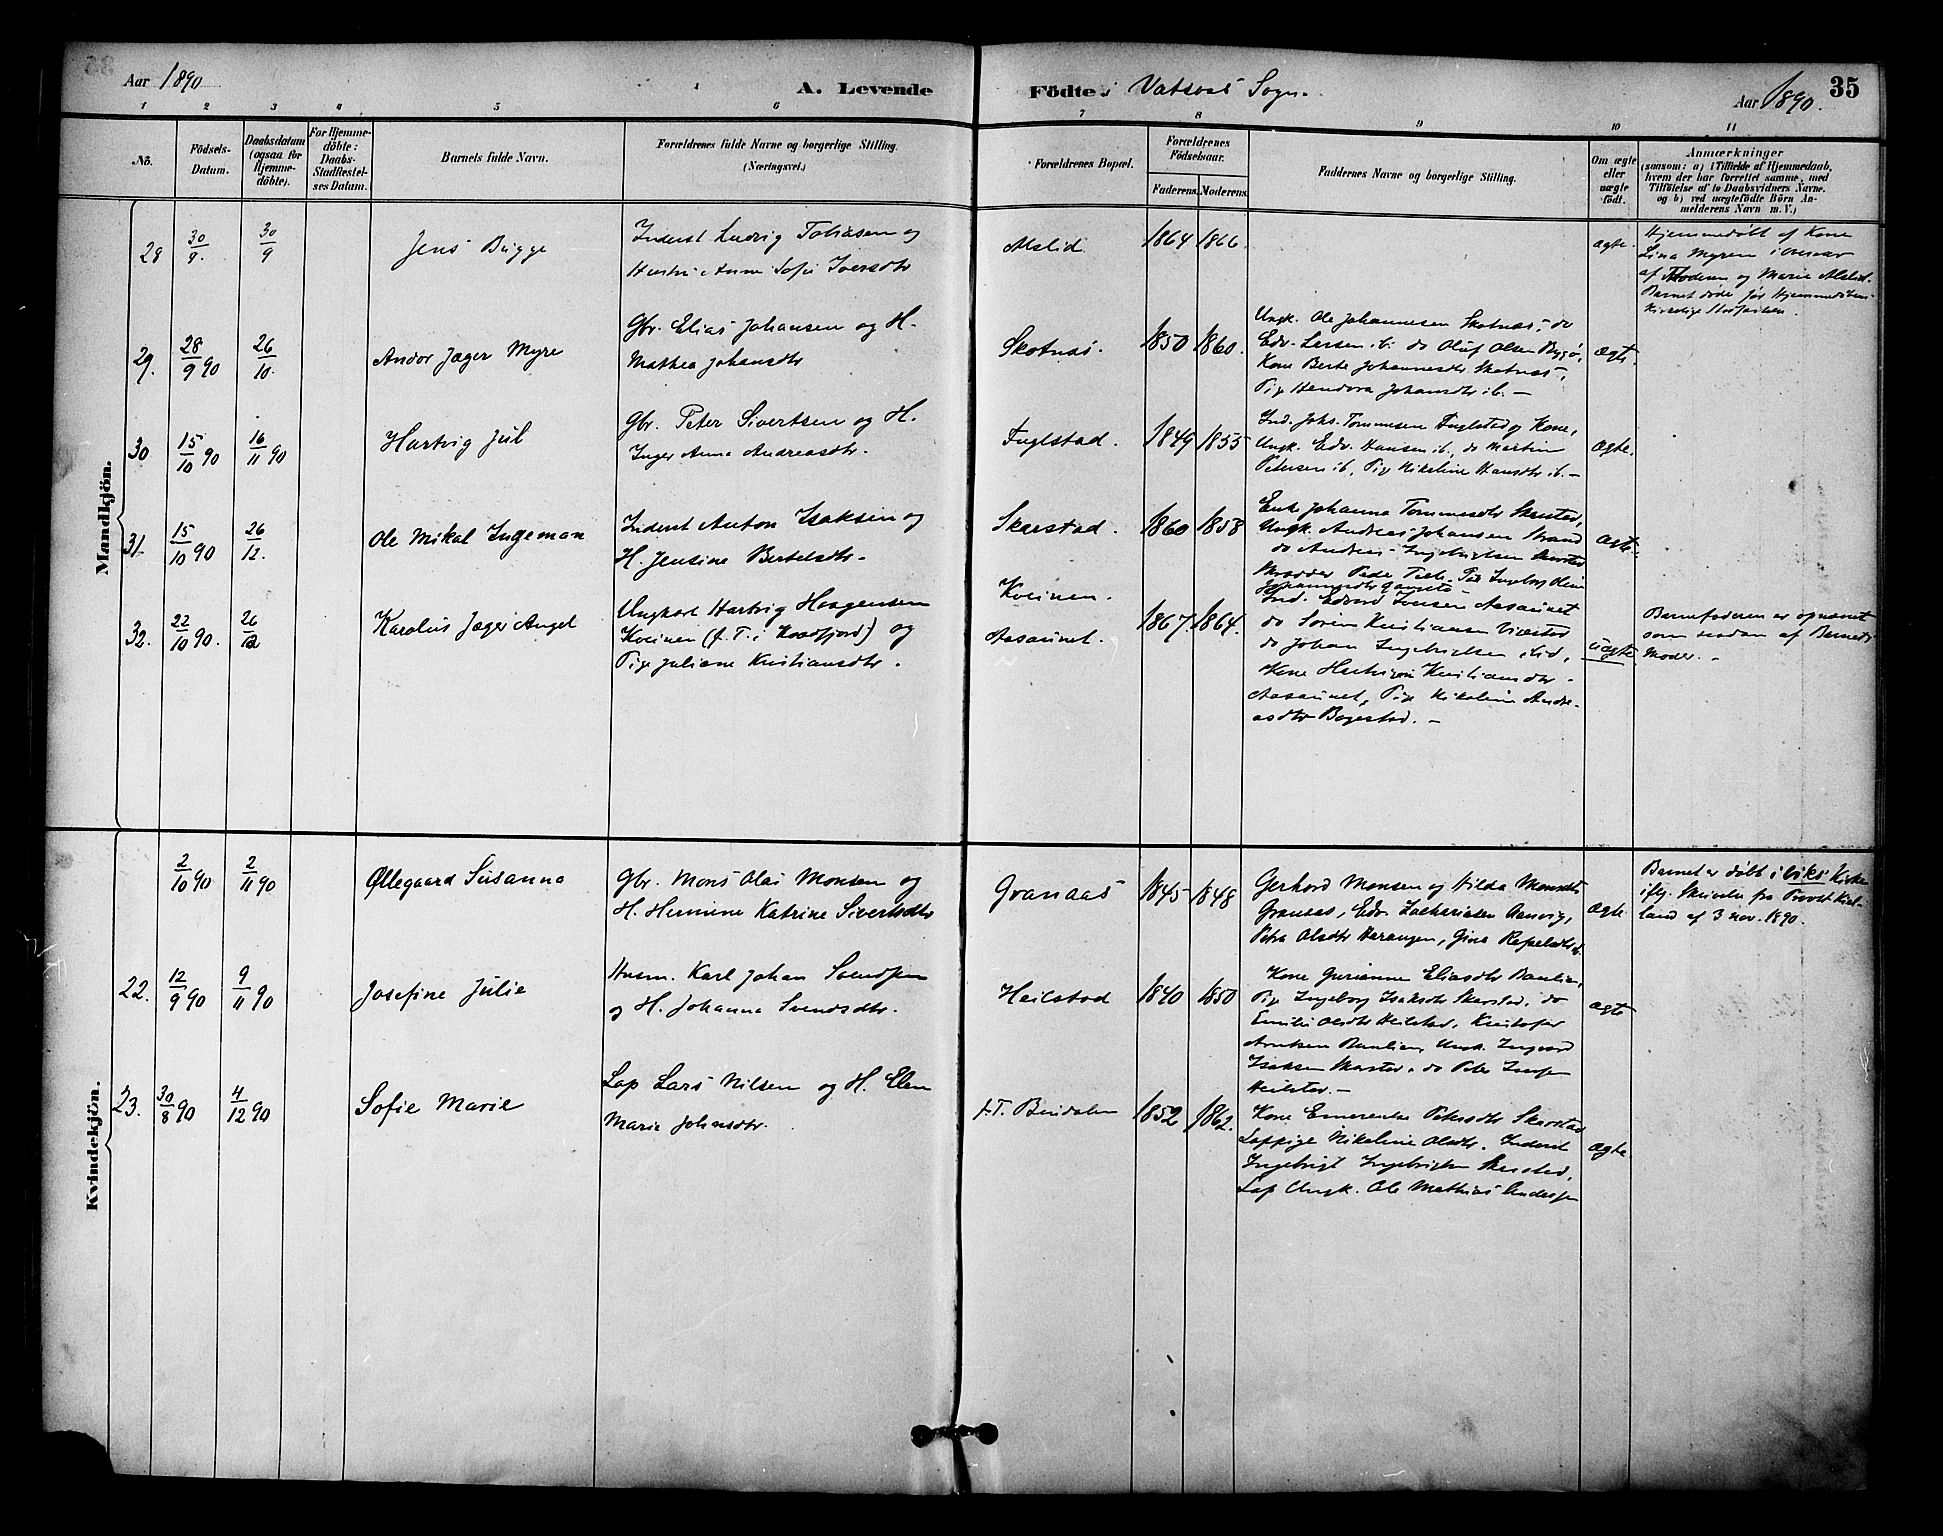 Aar 1890
A. Levende
Födte i Vatsaas Sogn.
Aar 1890.
35
1 2 3 4 5 6 7 8 9 10 11
No.
Födsels-
Datum.
Daabsdatum
(ogsaa for
Hjemme-
döbte).
For Hjemme-
döbte:
Daabs-
Stadfæstel-
ses Datum.
Barnets fulde Navn.
Forældrenes fulde Navne og borgerlige Stilling.
(Næringsvei.)
Forældrenes Bopæl.
Forældrenes
Födselsaar.
Faderens. Moderens.
Faddernes Navne og borgerlige Stilling.
Om ægte
eller
uægte
födt.
Anmærkninger
(saasom: a) i Tilfælde af Hjemmedaab,
hvem der har forrettet samme, med
Tilföielse af to Daabsvidners Navne.
og b) ved uægtefödte Börn An-
melderens Navn m. V.)
Mandkjön.
28
30/9.
30/9
Jens Brygge
Inderst Ludvig Tobiasen og
Hustru Anne Sofie Iversdtr
Alslid
1864
1866.
ægte.
Hjemmedøbt af Kone
Lina Myrem i Overvær
af Moderen og Marie Alslid.
Barnet døde før Hjemmedaabens
kirkelige Stadfæstelse.
29.
28/9 90
26/10.
Andor Jæger Myre
Gbr. Elias Johansen og H.
Mathea Johansdtr
Skotnæs.
1850
1860.
Ungk. Ole Johannesen Skotnæs, do
Edv. Larsen ib. do Oluf Olsen Byggø,
Kone Berte Johannesdtr Skotnæs,
Pige Hendora Johansdtr ib. —
ægte.
30
15/10 90
16/11 90
Hartvig Jul
Gbr. Peter Sivertsen og H.
Inger Anna Andreasdtr.
Fuglstad.
1849
1855
Ind. Johs. Tommesen Fuglstad og Kone,
Ungk. Edv. Hansen ib., do Martin
Petersen ib, Pige Nikoline Hansdtr ib. —
ægte.
31.
15/10 90
26/12.
Ole Mikal Ingeman
Inderst Anton Isaksen og
H. Jensine Bertelsdtr.
Skarstad.
1860
1858
Enk. Johanna Tommesdtr Skarstad,
Ungk. Andreas Johansen Strand
do Andreas Ingebrigtsen Skarstad
Skrædder Peder
ægte
32.
22/10 90.
26/12
Karolius Jæger Angel
Ungkarl Hartvig Haagensen
Kveinen (f. T. i Kvædfjord) og
Pige Juliane Kristiansdtr.
Kveinen.
Aasaunet.
1867.
1864.
Ind. Edvard Ivarsen Aasaunet
do Søren Kristiansen
do Johan Ingebrigtsen Lid,
Kone Kristiansdtr
Aasaunet, Pige Nikoline Andre-
asdtr Bogestad. —
uægte
Barnefaderen er opnævnt
som saadan af Barnets
Moder. —
Kvindekjön.
2/10 90
2/11 90
Øllegaard Susanna
Gbr. Mons Olai Monsen og
H. Hermine Katrine Sivertsdtr
Granaas
1845
1848
Gerhard Monsen og Hilda Monsdtr
Granaas, Edv. Zachariasen Aanvig,
Petra Olsdtr Harangen, Gina Rafaelsdtr ib.
ægte
Barnet er døbt i Viks Kirke
iflg. Skrivelse fra Provst Kiel-
land af 3 nov. 1890.
22.
12/9 90
9/11 90
Josefine Julie
Husm. Karl Johan Svendsen
og H. Johanna Svendsdtr.
Heilstad
1840
1850
Kone Gurianna Eliasdtr Baulien,
Pige Ingeborg Isaksdtr Skarstad, do
Emilie Olsdtr Heilstad, Kristofer
Arntsen Baulien, Ungk. Ingvard
Isaksen Skarstad, do Peter
Heilstad. —
ægte
23.
30/8 90
4/12 90
Sofie Marie
Lap Lars Nilsen og H. Elen
Marie Johnsdtr.
f. T. Bindalen
1852
1862.
Kone Emerentze Petersdtr Skarstad
Lappige Nikoline Olsdtr. Inderst
Ingebrigt Ingebrigtsen Skarstad,
Lap Ungk. Ole Mathias Andersen
ægte.